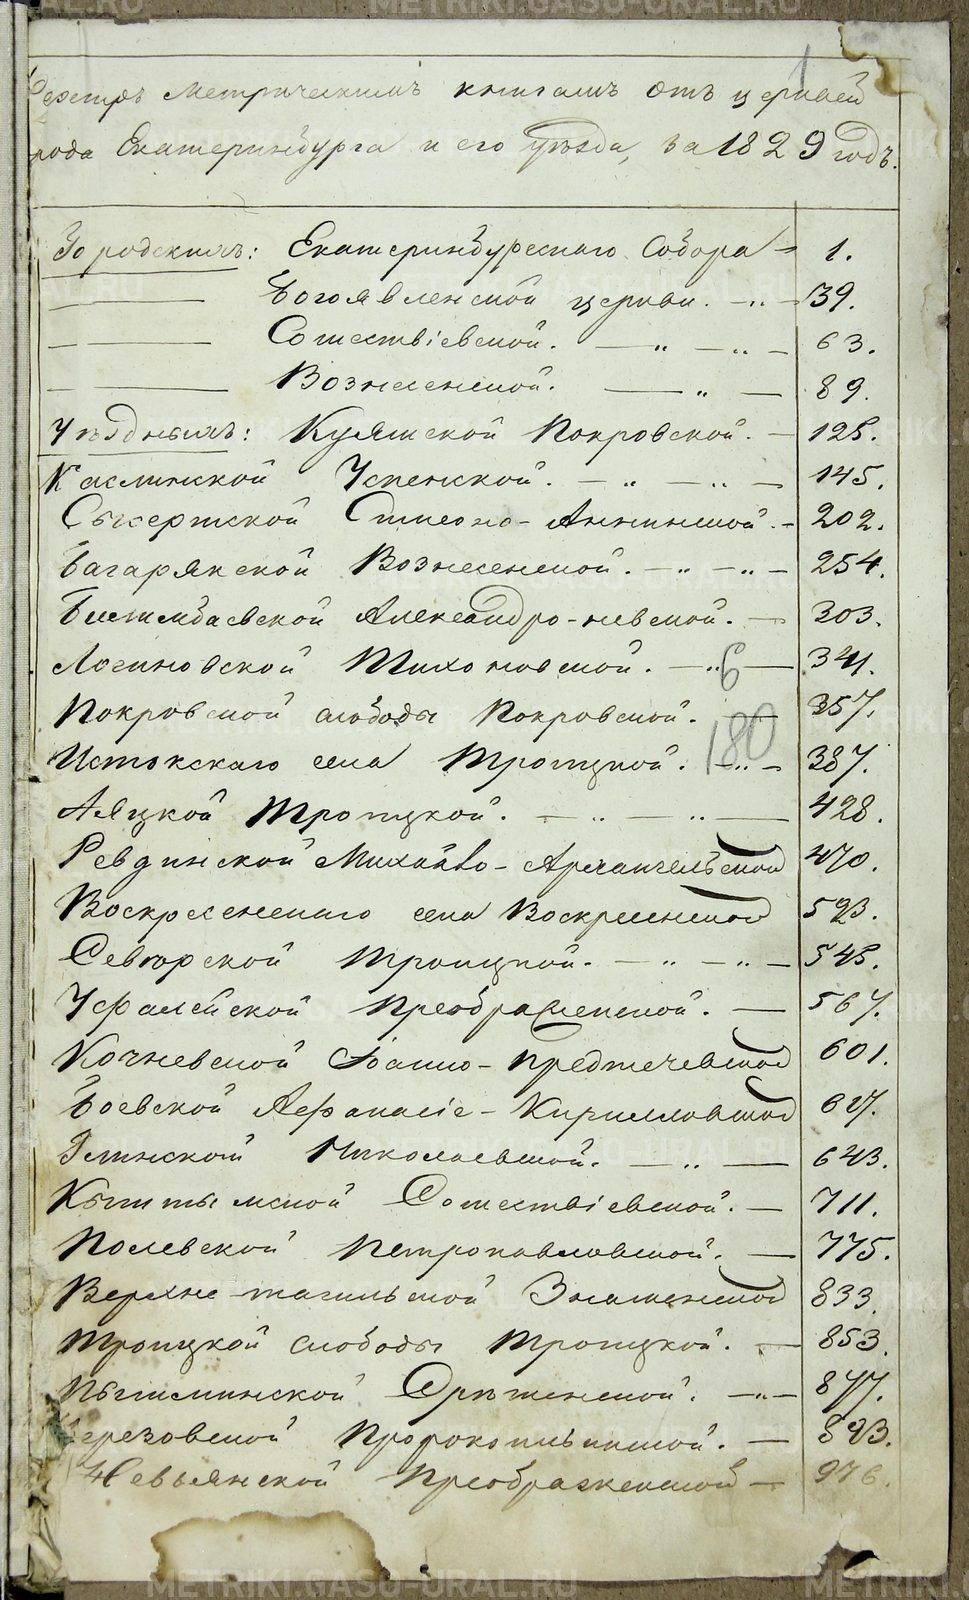 METRIKI.GASU-URAL.RU
1
Реэстръ метрическимъ книгамъ отъ церквей
города Екатеринбурга и его уѣзда, за 1829 годъ.
Городскимъ: Екатеринбургскаго Собора - 1.
— Богоявленской церкви. - „ - 39.
— Сошествіевской. — „ — „ — 63.
— Вознесенской. — „ — 89.
Уѣзднымъ: Куяшской Покровской. - 125.
Каслинской Успенской. — „ — „ — 145.
Сысертской Симеоно-Аннинской. - 202.
Багарякской Вознесенской. — „ — „ — 254.
Билимбаевской Александро-невской. — 303.
Логиновской Тихоновской. — „ — 341.
6
Покровской слободы Покровской. — 357.
180
Истокскаго села Троицкой. — „ — 387.
Аяцкой Троицкой. — „ — „ — 428.
Ревдинской Михайло-Архангельской 470.
Воскресенскаго села Воскресенской 523.
Севюрской Троицкой. — „ — „ — 545.
Уфалейской Преображенской. — 567.
Кочневской Іоанно-предтечевской 601.
Боевской Афанасіе-Кирилловской 627.
Глинской Николаевской. — „ — 643.
Кыштымской Сошествіевской. — 711.
Полевской Петропавловской. — 775.
Верхне-тагильской Знаменской 833.
Троицкой слободы Троицкой. — 853.
Пышминской Срѣтенской. — „ — 877.
Березовской Пророкоильинской. — 893.
Невьянской Преображенской — 976.
METRIKI.GASU-URAL.RU